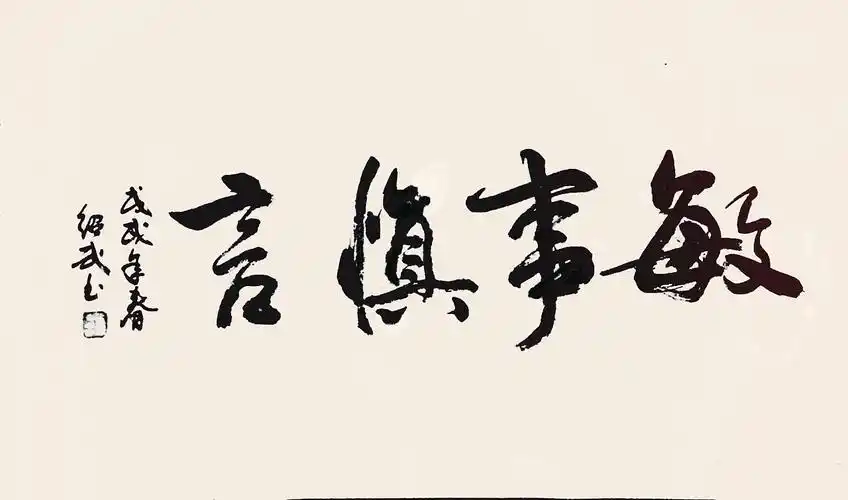 敏事慎言
戊戌年春
绍武书